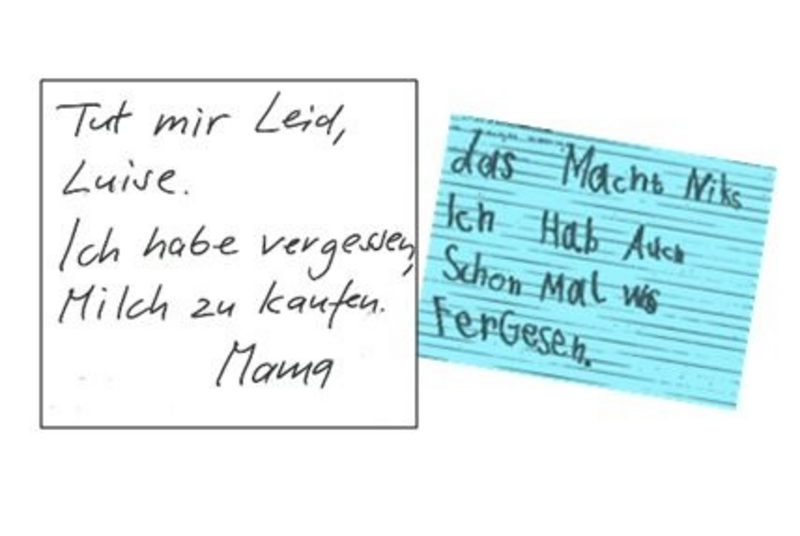 Tut mir Leid,
Luise.
Ich habe vergessen,
Milch zu kaufen.
Mama
das Macht Niks
Ich Hab Auch
Schon Mal Was
FerGesen.